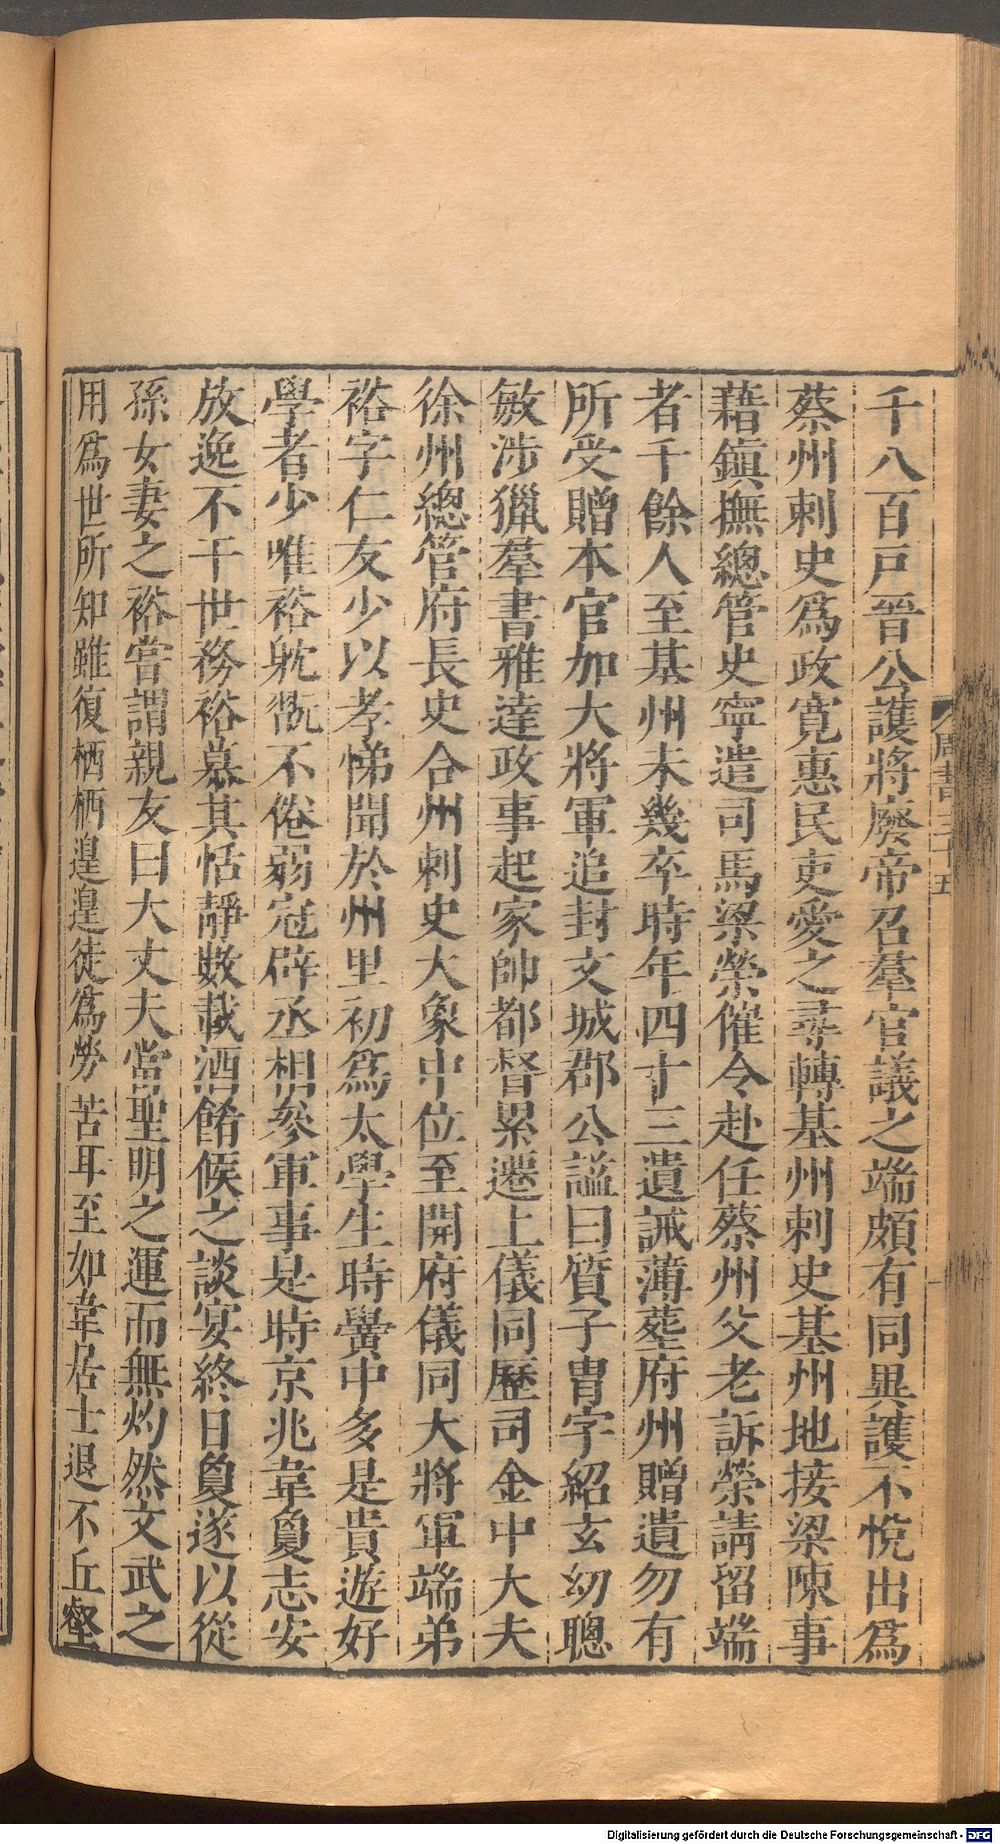 千八百戸晉公護將廢帝召羣官議之端頗有同異護不悅出爲
蔡州刺史爲政寬惠民吏愛之尋轉基州刺史基州地接梁陳事
藉鎭撫總管史寧遣司馬梁榮催令赴任蔡州父老訴榮請留端
者千餘人至基州未幾卒時年四十三遺誡薄葬府州贈遺勿有
所受贈本官加大將軍追封文城郡公謚曰質子胄字紹玄幼聰
敏涉獵羣書雅達政事起家帥都督累遷上儀同歷司金中大夫
徐州總管府長史合州刺史大象中位至開府儀同大將軍端弟
裕字仁友少以孝悌聞於州里初爲太學生時黌中多是貴遊好
學者少唯裕躭翫不倦弱冠辟丞相參軍事是時京兆韋敻志安
放逸不干世務裕慕其恬靜數載酒餚候之談宴終日敻遂以從
孫女妻之裕嘗謂親友曰大丈夫當聖明之運而無灼然文武之
用爲世所知雖復栖栖遑遑徒爲勞苦耳至如韋居士退不丘壑
周書三十五
Digitalisierung gefördert durch die Deutsche Forschungsgemeinschaft - DFG